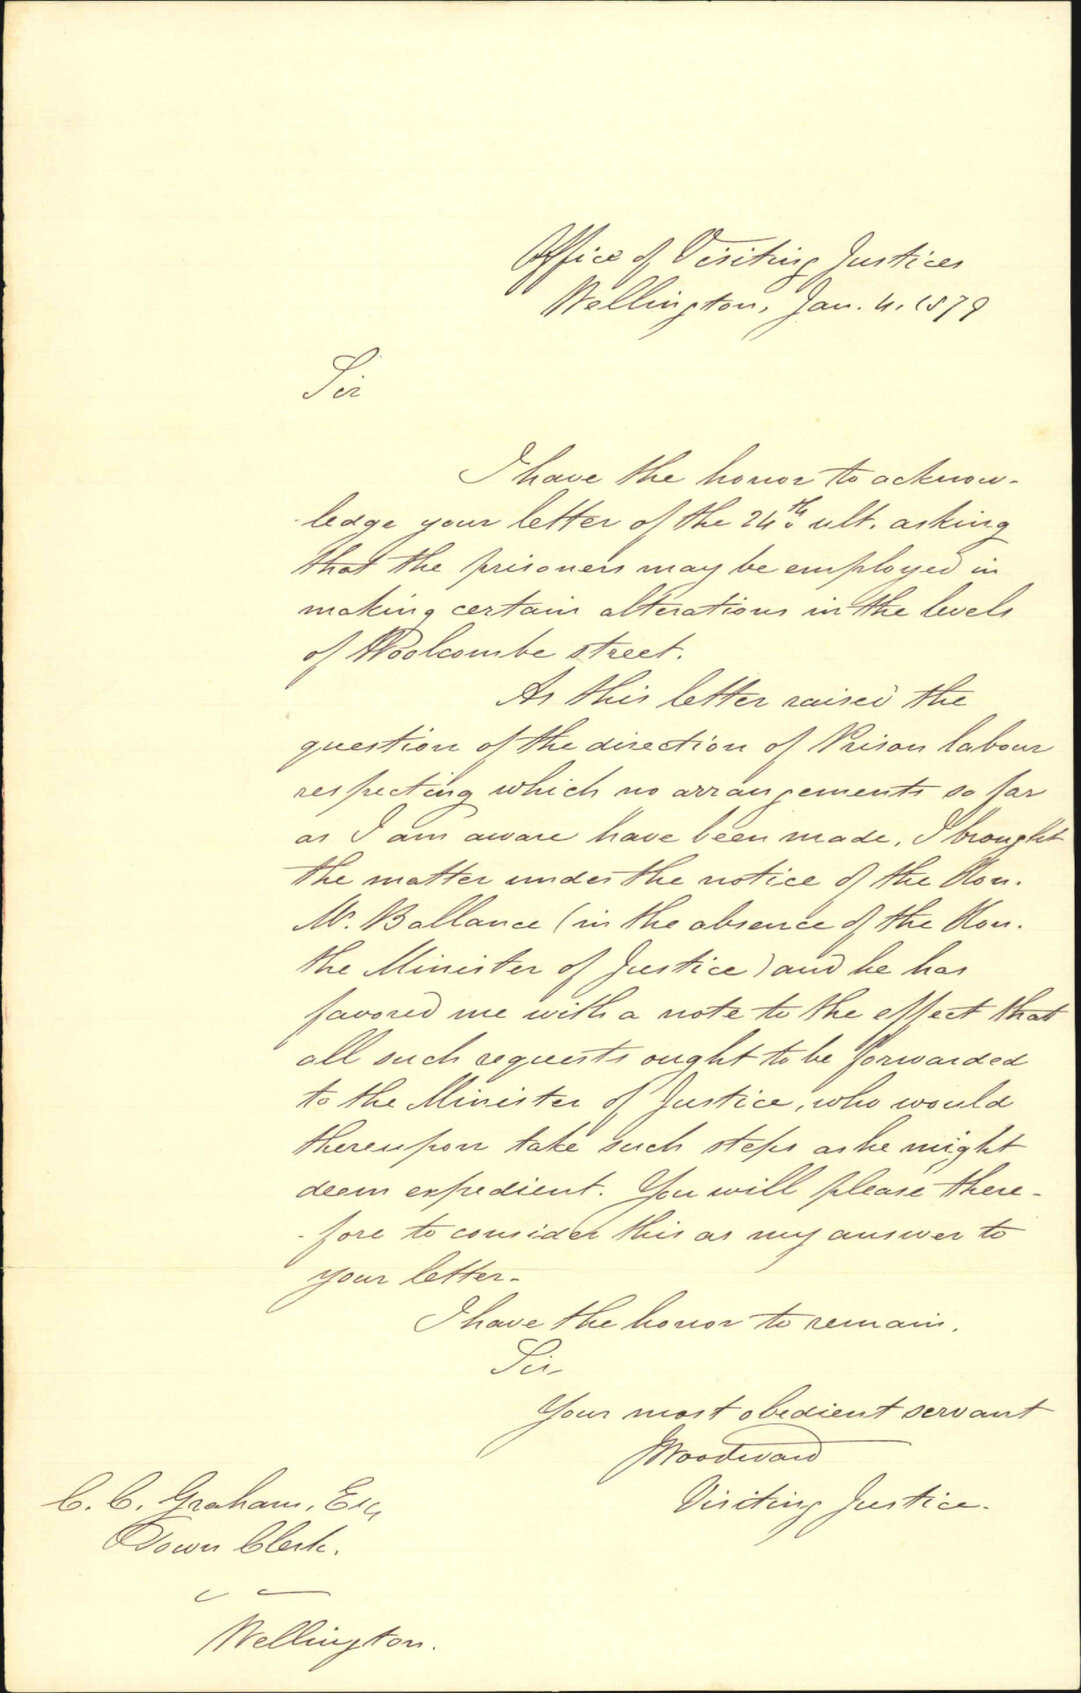 Office of Visiting Justices
Wellington, Jan. 4. 1879
Sir
I have the honor to acknow-
-ledge your letter of the 24th ult. asking
that the prisoners may be employed in
making certain alterations in the levels
of Woolcombe street.
As this letter raised the
question of the direction of Prison labour
respecting which no arrangements so far
as I am aware have been made, I brought
the matter under the notice of the Hon.
Mr. Ballance (in the absence of the Hon.
the Minister of Justice) and he has
favored me with a note to the effect that
all such requests ought to be forwarded
to the Minister of Justice, who would
thereupon take such steps as he might
deem expedient. You will please there-
-fore to consider this as my answer to
your letter.
I have the honor to remain,
Sir,
Your most obedient servant
JWoodward
Visiting Justice.
C. C. Graham, Esq
Town Clerk.
Wellington.